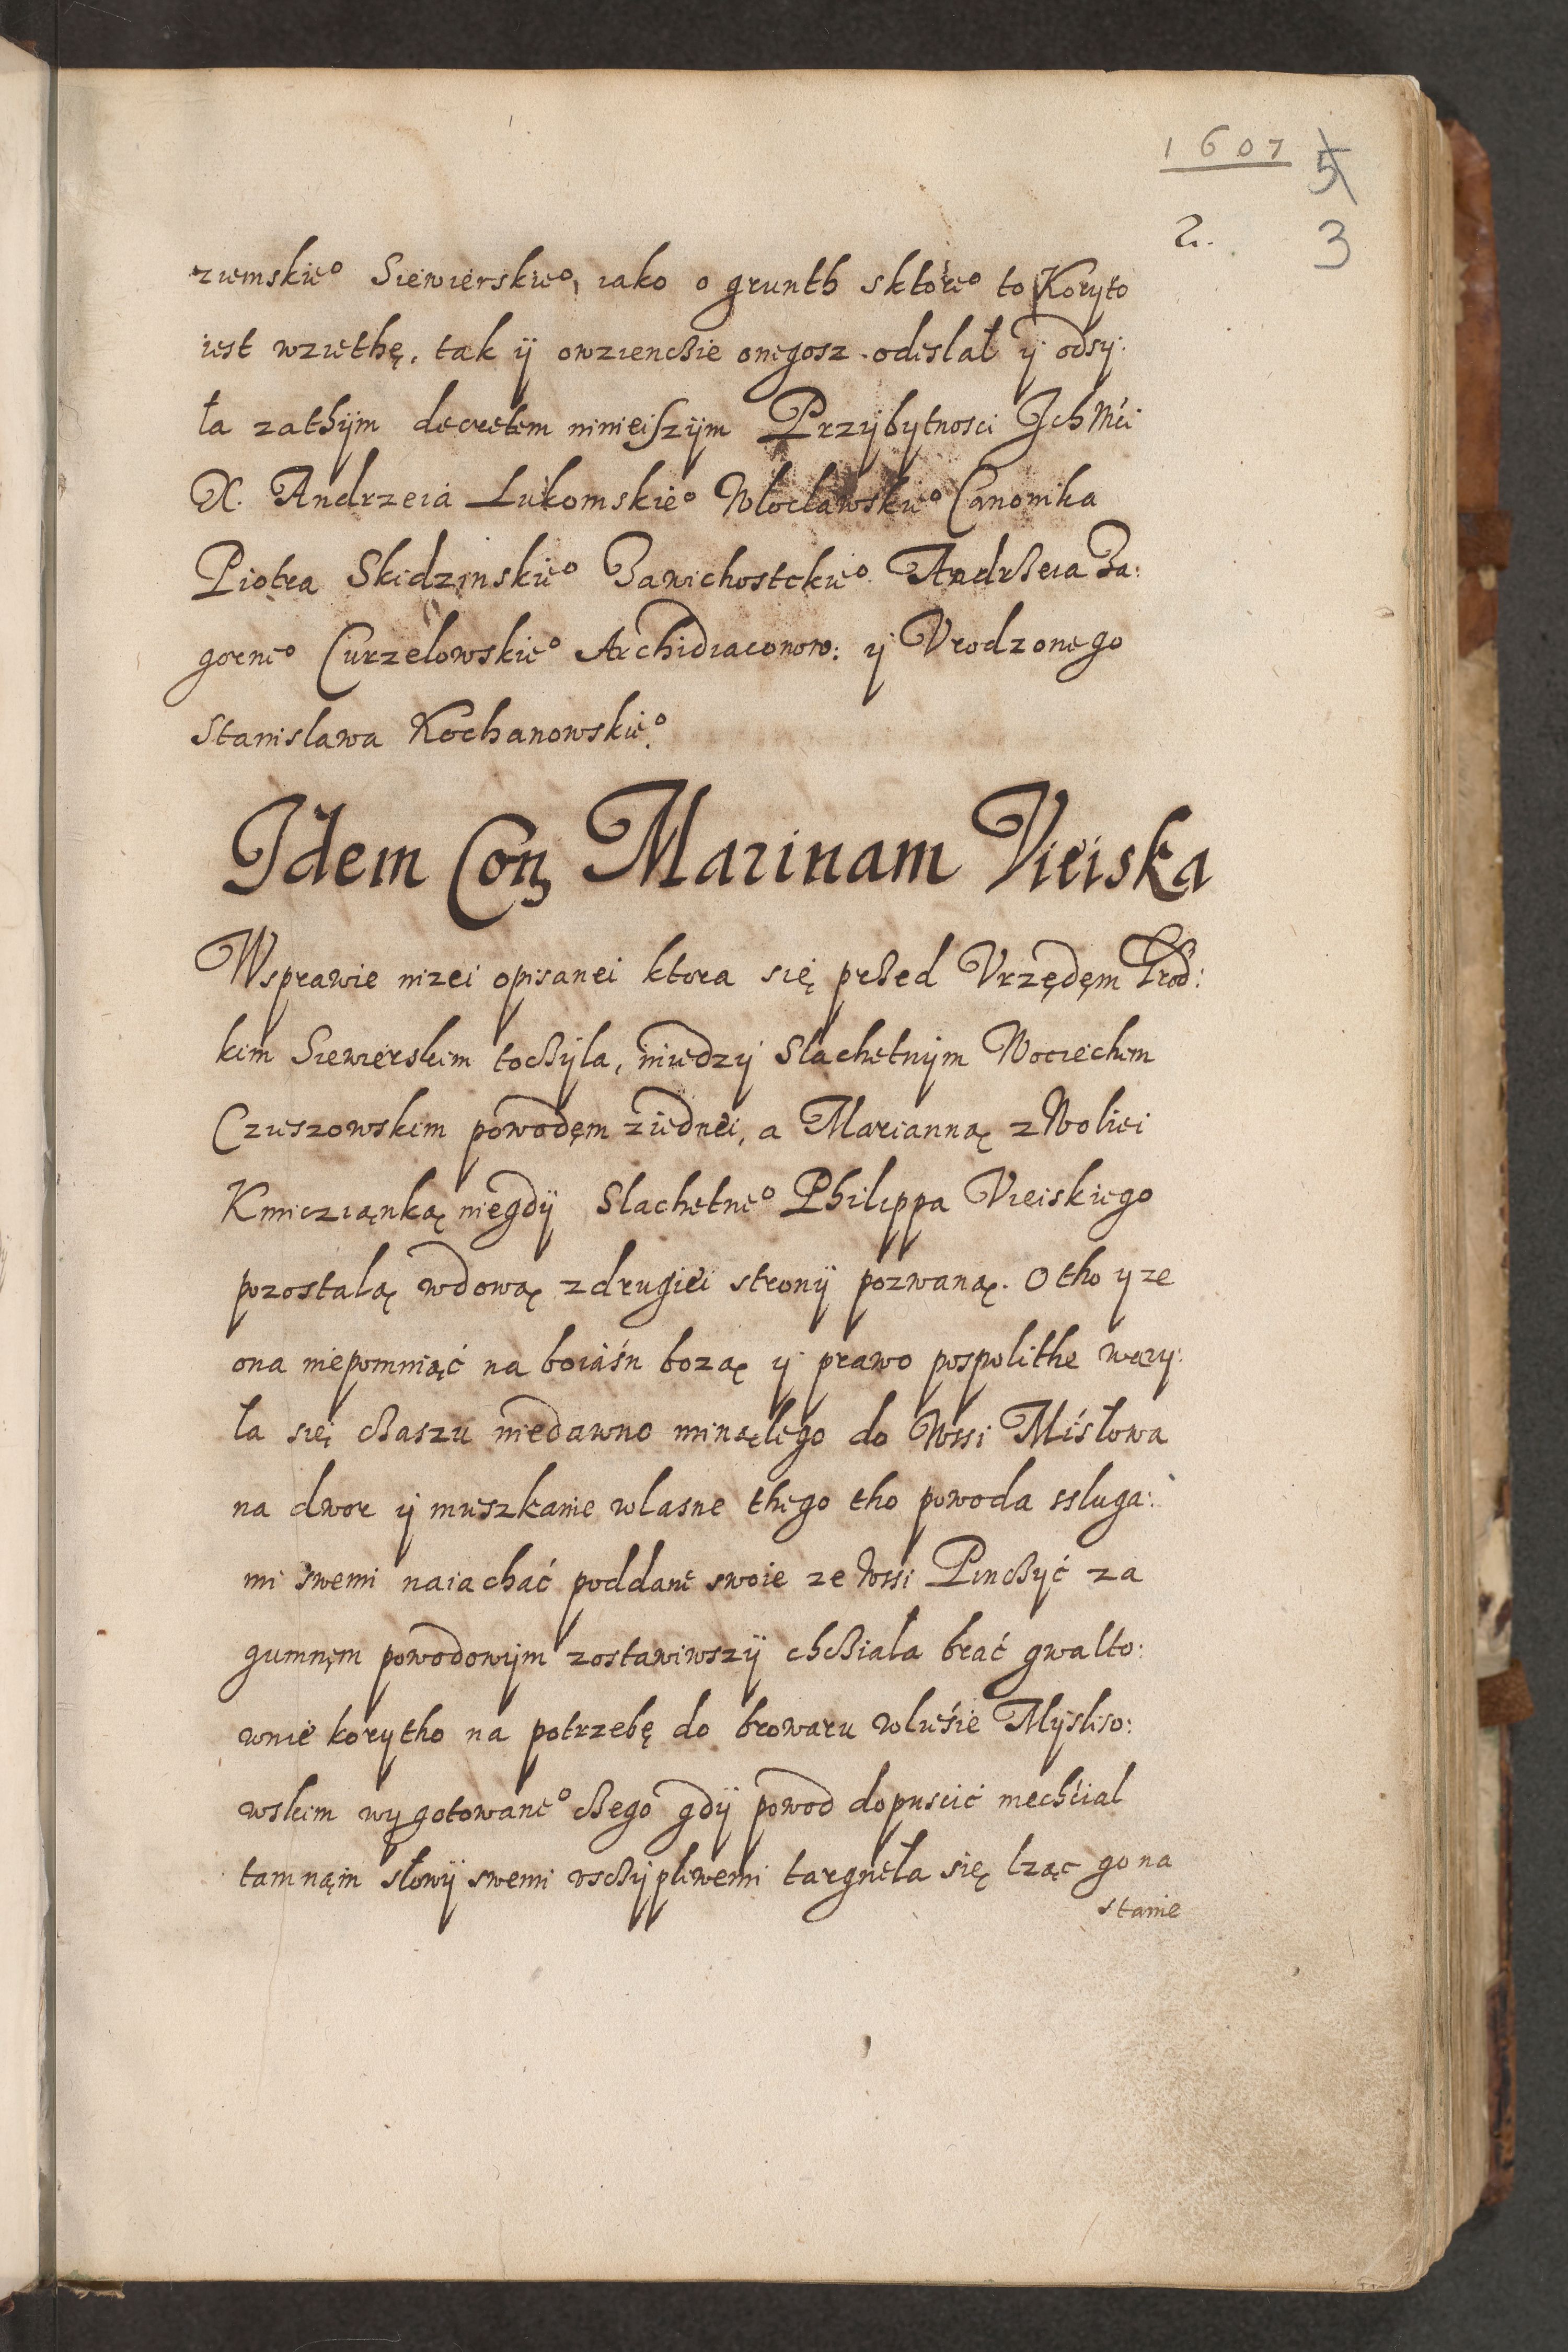 1607
5
2.
3
ziemskieº Siewierskieº, iako o grunth sktoreº to Koryto
iest wziethę, tak ÿ owzienczie onegosz odeslał ÿ odsy:
ła zathÿm decretem ninieiszÿm Przÿbytnosci Ich Mci
X. Andrzeia Lukomskieº Wloclawskieº Canonika
Piotra Skidzinskieº Zawichostckieº Andrzeia Za:
gorneº Curzelowskieº Archidiaconow: ÿ Vrodzonego
Stanislawa Kochanowskieº.
Idem Con Marinam Vieiska
Wsprawie nizei opisanei ktora się przed Vrzędęm Grod:
kim Siewierskim toczÿla, miedzÿ Slachetnÿm Wociechem
Czieszowskim powodęm ziednei, a Marianną z Woliei
Kmicziąnką niegdÿ Slachetneº Philippa Vieiskiego
pozostalą wdową zdrugiei stronÿ pozwaną. O tho yze
ona niepomniąć na boiaśn bozą ÿ prawo pospolithe wazy:
ła się czaszu niedawno minąlego do Wssi Misłowa
na dwor ÿ mieszkanie wlasne thego tho powoda ssluga:
mi swemi naiachać poddane swoie ze Wssi Pinczÿć za
gumnęm powodowÿm zostawiwszÿ chcziała brać gwałto:
wnie korytho na potrzebę do browaru wlieśie Mÿsliso:
wskim wygotowaneº czego gdÿ powod dopuscić niechćial
tam nąm słowÿ swemi vsczÿpliwemi targneła się lząc go na
stanie